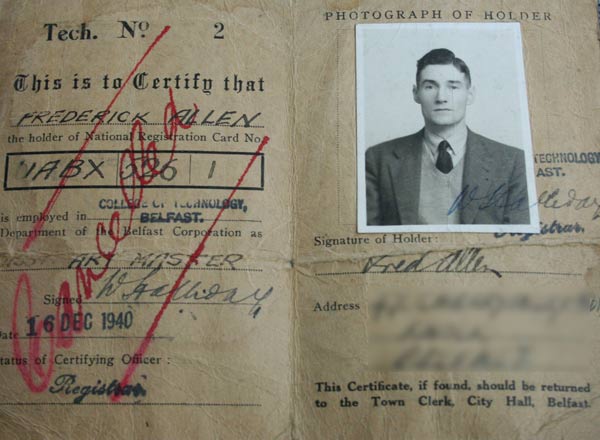 Tech. No. 2
This is to Certify that
FREDERICK ALLEN
the holder of National Registration Card No.
IABX 526 1
is employed in COLLEGE OF TECHNOLOGY,
BELFAST.
Department of the Belfast Corporation as
ART MASTER
Signed W Halliday
Date 16 DEC 1940
Status of Certifying Officer :
Registrar.
Cancelled
PHOTOGRAPH OF HOLDER
TECHNOLOGY
AST.
W Halliday
Registrar.
Signature of Holder:
Fred Allen
Address
This Certificate, if found, should be returned
to the Town Clerk, City Hall, Belfast.